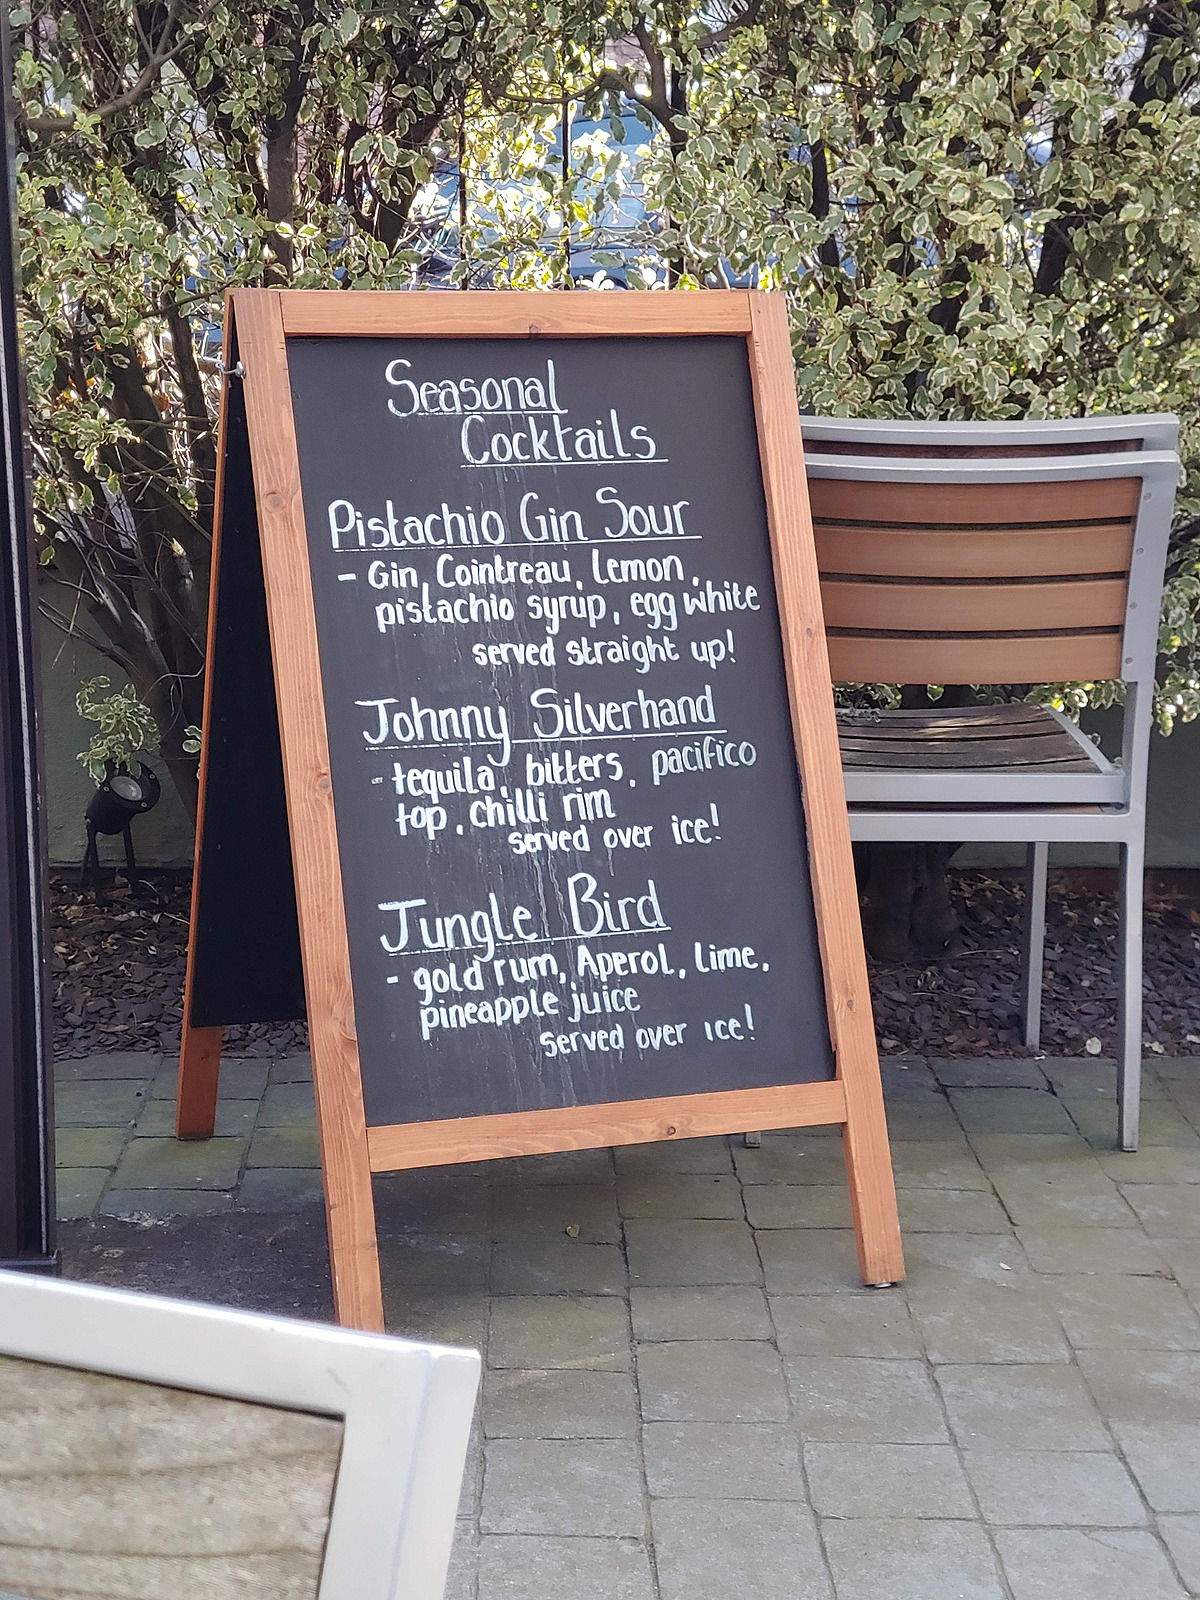 Seasonal
Cocktails
Pistachio Gin Sour
- Gin, Cointreau, Lemon,
pistachio syrup, egg white
served straight up!
Johnny Silverhand
- tequila, bitters, pacifico
top, chilli rim
served over ice!
Jungle Bird
- gold rum, Aperol, lime,
pineapple juice
served over ice!